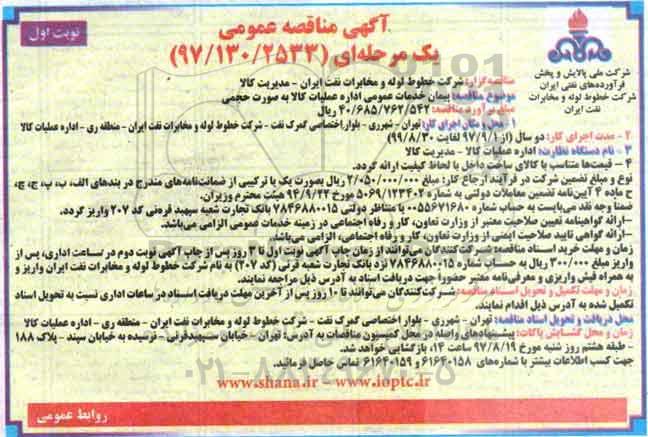 نوبت اول
آگهی مناقصه عمومی
یک مرحله‌ای (۹۷/۱۳۰/۲۵۳۳)
شرکت ملی پالایش و پخش
فرآورده‌های نفتی ایران
شرکت خطوط لوله و مخابرات
نفت ایران
مناقصه‌گزار: شرکت خطوط لوله و مخابرات نفت ایران - مدیریت کالا
موضوع مناقصه: پیمان خدمات عمومی اداره عملیات کالا به صورت حجمی
مبلغ برآورد مناقصه: ۴۰/۶۸۵/۷۶۲/۵۴۲ ریال
۱- محل و مکان اجرای کار: تهران - شهرری - بلوار اختصاصی گمرک نفت - شرکت خطوط لوله و مخابرات نفت ایران - منطقه ری - اداره عملیات کالا
۲- مدت اجرای کار: دو سال (از ۹۷/۹/۱ لغایت ۹۹/۸/۳۰)
۳- نام دستگاه نظارت: اداره عملیات کالا - مدیریت کالا
۴- قیمت‌ها متناسب با کالای ساخت داخل با لحاظ کیفیت ارائه گردد.
نوع و مبلغ تضمین شرکت در فرآیند ارجاع کار: مبلغ ۲/۰۵۰/۰۰۰/۰۰۰ ریال بصورت یک یا ترکیبی از ضمانت‌نامه‌های مندرج در بندهای الف، ب، پ، ج، چ،
ح ماده ۴ آیین‌نامه تضمین معاملات دولتی به شماره ۵۰۶۹/۱۲۳۴۰۲ مورخ ۹۴/۹/۲۲ هیئت محترم وزیران.
ضمنا وجه نقد می‌بایست به حساب شماره ۰۰۵۵۶۷۱۶۸۰ یا متناظر دولتی ۷۸۴۶۸۸۰۰۱۵ بانک تجارت شعبه سپهبد قرنی کد ۲۰۷ واریز گردد.
-ارائه گواهینامه تعیین صلاحیت معتبر از وزارت تعاون، کار و رفاه اجتماعی در زمینه خدمات عمومی الزامی می‌باشد.
-ارائه گواهی تایید صلاحیت ایمنی از وزارت تعاون، کار و رفاه اجتماعی، الزامی می‌باشد.
زمان و مهلت خرید اسناد مناقصه: شرکت‌کنندگان می‌توانند از زمان چاپ آگهی نوبت اول تا ۳ روز پس از چاپ آگهی نوبت دوم در ساعت اداری، پس از
واریز مبلغ ۳۰۰/۰۰۰ ریال به حساب شماره ۷۸۴۶۸۸۰۰۱۵ نزد بانک تجارت شعبه قرنی (کد ۲۰۷) به نام شرکت خطوط لوله و مخابرات نفت ایران واریز و
به همراه فیش واریزی و معرفی‌نامه معتبر حضوراً جهت دریافت اسناد به آدرس ذیل مراجعه نمایند.
زمان و مهلت تکمیل و تحویل اسناد مناقصه: شرکت‌کنندگان می‌توانند تا ۱۰ روز پس از آخرین مهلت دریافت اسناد در ساعات اداری نسبت به تحویل اسناد
تکمیل شده به آدرس ذیل اقدام نمایند.
محل دریافت و تحویل اسناد مناقصه: تهران - شهرری - بلوار اختصاصی گمرک نفت - شرکت خطوط لوله و مخابرات نفت ایران - منطقه ری - اداره عملیات کالا
زمان و محل گشایش پاکات: پیشنهادهای واصله در محل کمیسیون مناقصات به آدرس: تهران - خیابان سپهبدقرنی - نرسیده به خیابان سپند - پلاک ۱۸۸
- طبقه هشتم روز شنبه مورخ ۹۷/۸/۱۹ ساعت ۱۴، بازگشایی خواهد شد.
جهت کسب اطلاعات بیشتر با شماره‌های ۶۱۶۴۰۱۵۸ و ۶۱۶۴۰۱۵۹ تماس حاصل فرمائید.
www.shana.ir - www.ioptc.ir
روابط عمومی